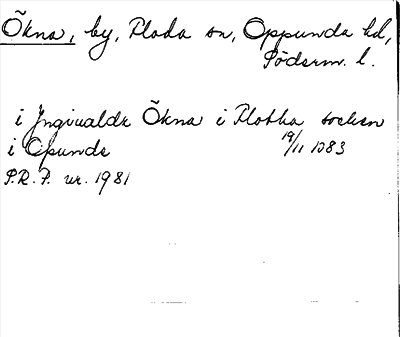 Ökna, by, Floda sn, Oppunda hd,
Söderm. l.
i Jngiualdz Ökna i Flotha sochen
i Opunde 19/11 1383
S.R.P. nr. 1981